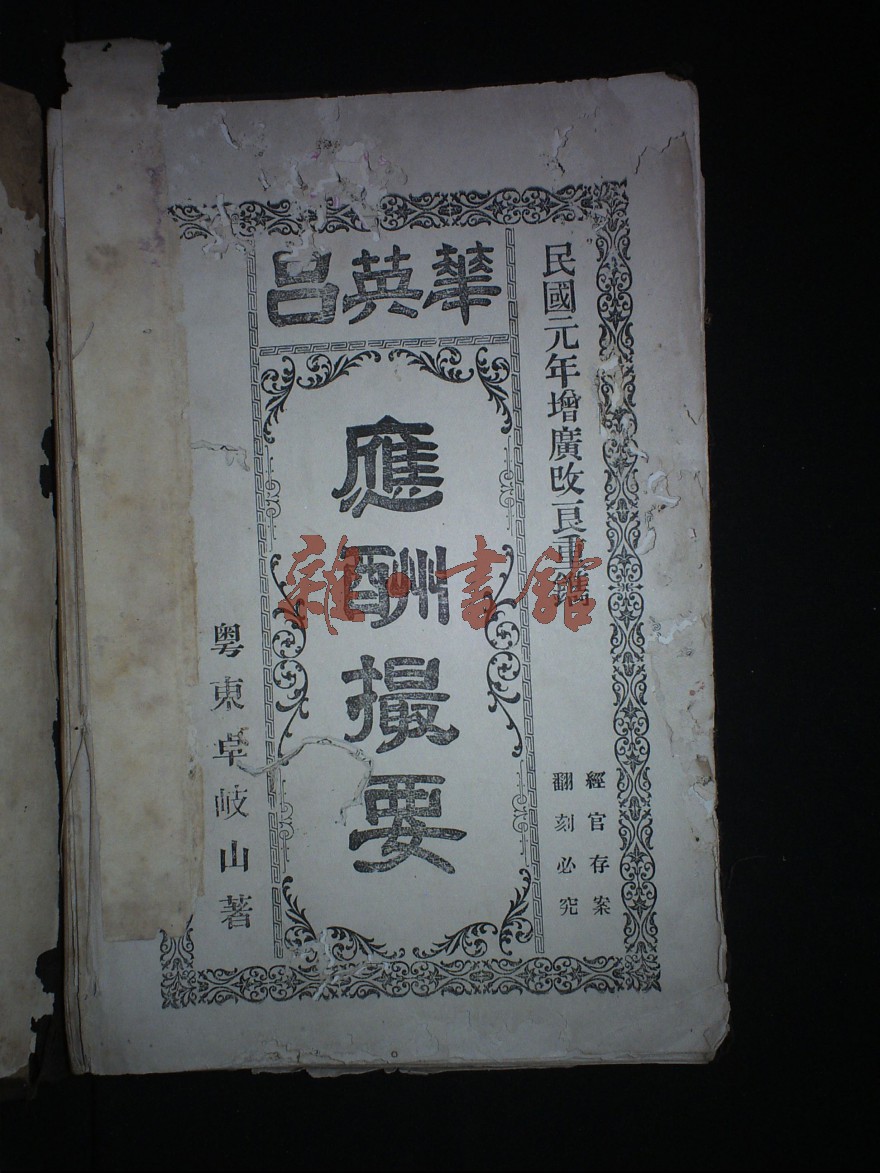 民國元年增廣改良重鐫
經官存案
翻刻必究
華英呂
應酬撮要
粵東卓岐山著
雜·書館